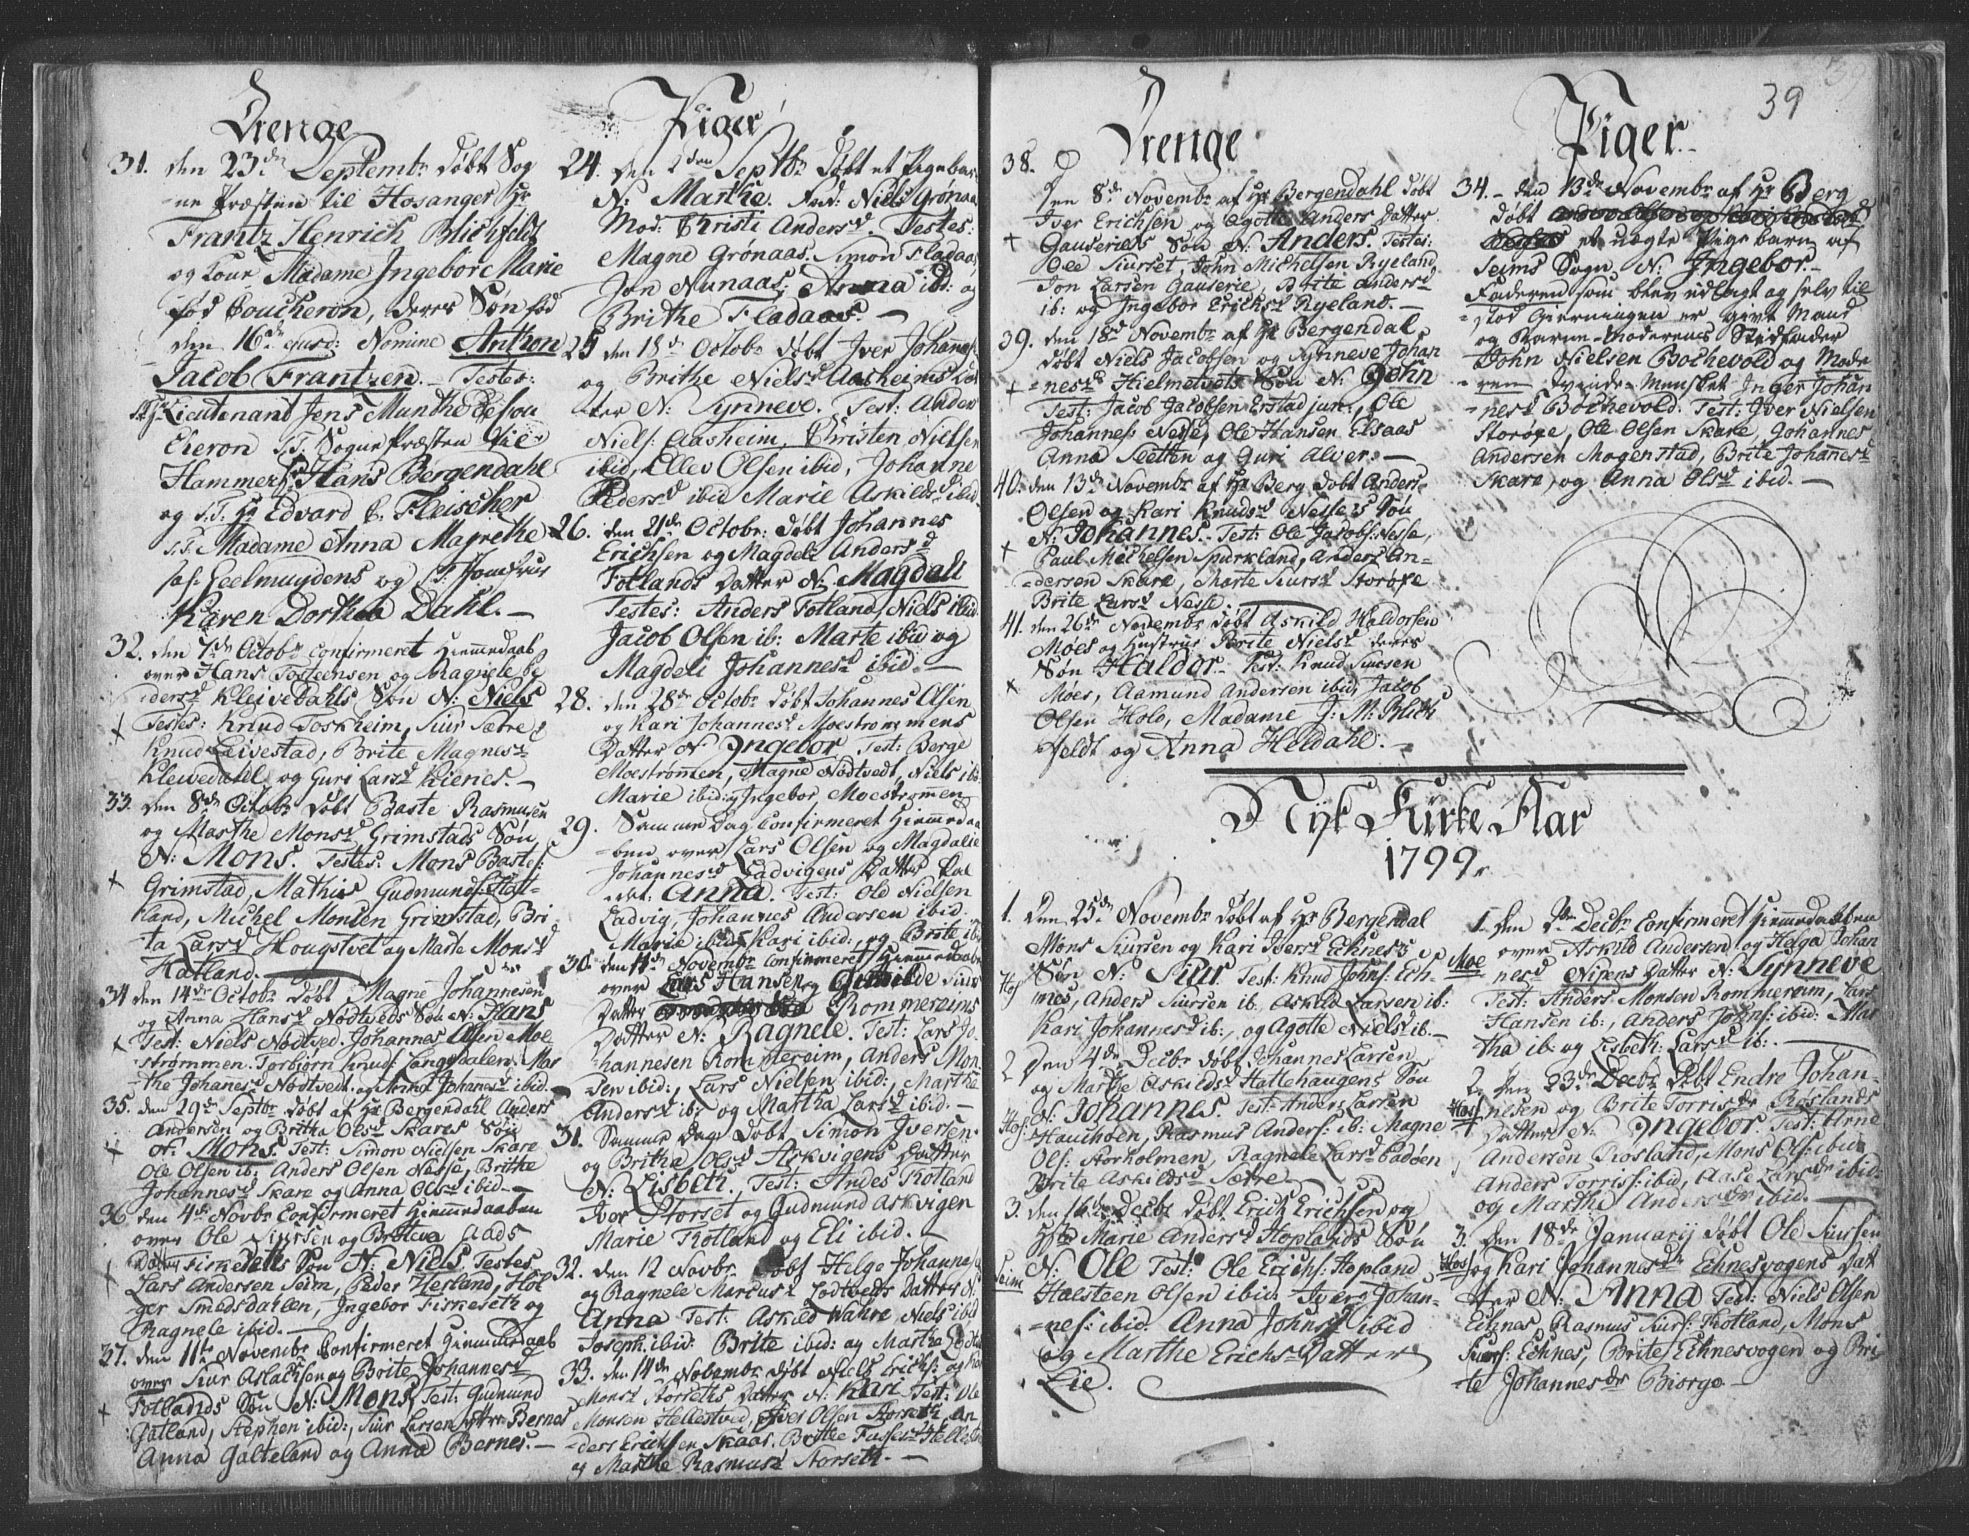 Drenge
31. den 23de Septembr døbt Sog
ne Præsten til Hosanger Hr
Frantz Henrich Blichfeldt
og Kone Madame Ingebor Marie
fød Coucheron, deres Søn fød
den 16de ejusd: Nomine Anthon
Jacob Frantzen. Testes:
Hr Lieutenant Jens Munthe Cou
cheron S.T. Sogne Præsten til
Hammer Hr Hans Bergendahl
og S.T. Hr Edvard C. Fleischer
S.T. Madame Anna Magrethe
sal: Geelmuydens og S.T. Jomfrue
Karen Dorthea Dahl.
32. den 7de Octobr confirmeret Hiemmedaab
over Hans Torsteensen og Ragnele
Kleivedahls Søn N: Niels
Testes: Knud Toskheim, Siur Sætre,
Knud Leivestad, Brite Magnusd
Kleivedahl og Guri Larsd Kienes.
33. den 8de Octobr døbt Baste Rasmusen
og Marthe Monsd Grimstads Søn
N: Mons. Testes: Mons Bastes:
Grimstad, Mathis Gudmunds: Hat-
land, Michel Monsen Grimstad, Bri
ta Larsd Hougstvet og Marte Monsd
Hatland.
34 den 14de Octobr døbt Magne Johannesen
og Anna Hansd Nødtveds Søn N: Hans
Test: Niels Nødtved. Johannes Olsen Moe
strømmen. Torbiørn Knuds: Langedalen. Mar
the Johanesd Nødtvedt. og Anna Johannesd ibid.
35. den 29de Septbr døbt af Hr Bergendahl Anders
Andersen og Britha Olsd Skares Søn
N. Mons. Test: Simon Nielsen Skare
Ole Olsen ib: Anders Olsen Nesse, Brithe
Johannesd Skare og Anna Olsd ibid.
36 den 4de Novbr Confirmeret Hiemmedaaben
over Ole Siursen og Aads
Datter Fiskesetts Søn N. Niels. Testes
Lars Andersen Seim, Peder Herland, Hol
ger Smedsdahlen, Ingebor Fiskeseth og
Ragnele ibid.
37. den 11te Novembr Confirmeret Hiemmedaab
over Siur Aslachsen og Brite Johannesd
Fotlands Søn N: Mons. Test: Gudmund
Gatland, Stephen ibid:, Siur Larsen Bernes
Anna Galteland og Anna Bernes.
Piger
24. den 2den Septbr døbt et Pigebar
N: Marthe. Fad: Niels Grønaas
Mod: Christi Andersd. Testes:
Magne Grønaas. Simon Fladaas
Jon Nunaas; Anna ibid: og
Brithe Fladaas.
25 den 18de Octobr døbt Iver Johans:
og Brithe Nielsd Aasheims Dat
ter N: Synneve. Test: Anders
Niels: Aasheim, Christen Nielsen
ibid, Ellev Olsen ibid, Johanne
Pedersd ibid Marie Askildsd ibid
26. den 21de Octobr: døbt Johannes
Erichsen og Magdeli Andersd
Fotlands Datter N: Magdeli
Testes: Anders Fotland, Niels ibid
Jacob Olsen ib: Marte ibid og
Magdeli Johannesd ibid.
28. den 28de Octobr døbt Johannes Olsen
og Kari Johannesd Moestrømmens
Datter N: Ingebor Test: Berge
Moestrømmen, Magne Nødtvedt, Niels ib:
Marie ibid: og Ingebor Moestrømmen
29. Samme Dag Confirmeret Hiemmedaa
ben over Lars Olsen og Magdalie
Johannesd Ladvigens Datter kal
det: Anna. Test: Ole Nielsen
Ladvig, Johannes Andersen ibid.
Marie ibid: Kari ibid:, og Brite ib
30. den 11te Novembr confirmeret Hiemmedaab
over Lars Hansen og Gunilde Siurs
Datter Rommereims
Datter N: Ragnele. Test: Lars Jo
hannesen Rommereim, Anders Mon
sen ibid:, Lars Nielsen ibid:, Marthe
Andersd ib: og Martha Larsd ibid.
31. Samme Dag døbt Simon Iversen
og Brithe Olsd Askvigens Datter
N: Lisbeth. Test: Andes Kotland
Iver Storset og Gudmund Askvigen
Marie Kotland og Eli ibid.
32. den 12 Novbr døbt Helge Johannes
og Ragnele Marcusd Lodtveds Datter N:
Anna Test: Askild Wahre Niels ibid
Joseph ibid: Brite ibid: og Martha
33. den 14de Novembr døbt Niels Erichs: og
Monsd Storseths Datter N: Kari Test: Ole
Monsen Hellestved, Iver Olsen Storseth, An
ders Erichsen Skaas. Brithe Hellestv
og Marthe Rasmusd Storseth.
39
Drenge
38.
den 8de Novembr af Hr Bergendahl døbt
Iver Erichsen og Agotte Anders Datter
Gauseriess Søn N: Anders. Testes:
Ole Siurset, John Michelsen Ryeland
Jon Larsen Gauserie, Brite Andersd
ib: og Ingebor Erichsd Ryeland.
39. den 18de Novembr af Hr Bergendal
døbt Niels Jacobsen og Synneve Johan
nesd Hielmetvets Søn N: John
Test: Jacob Jacobsen Erstad jun:, Ole
Johannes: Nesse, Ole Hansen Elsaas
Anna Sletten og Guri Alver.
40. den 13de Novembr af Hr Berg døbt Anders
Olsen og Kari Knudsd Nesses Søn
N: Johannes. Test: Ole Jacobs: Nesse,
Paul Michelsen Spurkland, Anders An-
dersen Skare, Marte Siursd Storøge
Brite Larsd Nesse.
41. den 26de Novembr døbt Askild Haldorsen
Moes og Hustrus Berite Nielsd deres
Søn Haldor. Test: Knud Siursen
Moes, Aamund Andersen ibid, Jacob
Olsen Hole, Madame J: M: Blich
feldt og Anna Heldahl.
Piger
34. den 13de Novembr af Hr Berg
døbt
et uægte Pigebarn af
Seims Sogn N: Ingebor.
Faderen som blev udlagt og selv til
stod Gierningen er givt Mand
og Barne-Moderens Stedfader
John Nielsen Bochevold og Mode
ren tyende-Mensket Inger Johan
nesd Bochevold. Test: Iver Nielsen
Storøge, Ole Olsen Skare, Johannes
Andersen Mogenstad, Brite Johanesd
Skare, og Anna Olsd ibid.
Nyt Kirke Aar
1799.
1. den 25de Novembr døbt af Hr Bergendal
Mons Siursen og Kari Iversd Echnes's
Søn N: Siur Test: Knud Johns: Ech
Hos
nes, Anders Siursen ib. Askild Larsen ib:
Kari Johannesd ib:, og Agotte Nielsd ib.
2 Den 4de Decbr døbt Johannes Larsen
og Martje Askildsd Hattehaugens Søn
Hos: N: Johannes. Test: Anders Larsen
Hauchøen, Rasmus Anders: ib: Magne
Ols: Storholmen, Ragnele Larsd Padøen
Brite Askildsd Sætre
3. den 16de Decbr døbt Erich Erichsen og
Marie Andersd Hoplands Søn
Seim N: Ole Test: Ole Erichs: Hopland
Halsteen Olsen ibid: Iver Johan-
nes: ibid: Anna Johnsd ibid
og Marthe Erichs Datter
Lie.
1. den Decbr Confirmeret Hiemmedaaben
over Askild Andersen og Helga Johan
Moe nesd Nipens Datter N: Synneve
Test: Anders Monsen Rommereim, Lars
Hansen ib:, Anders Johns: ibid: Mar
tha ib: og Lisbeth Larsd ib:.
2. den 23de Decbr døbt Endre Johan-
Hos nesen og Brite Torrisdr Roslands
Datter N: Ingebor Test: Arne
Andersen Rosland, Mons Ols: ibid
Anders Torris: ibid, Aase Larsdr ibid:
og Marthe Andersdr ibid.
3. den 18de Januarij døbt Ole Siursen
Hos og Kari Johannesdr Echnesvogens Dat
ter N: Anna Test: Niels Olsen
Echnes, Rasmus Siurs: Kotland, Mons
Siurs: Echnes, Brite Echnesvogen og Bri
te Johannesdr Biorge